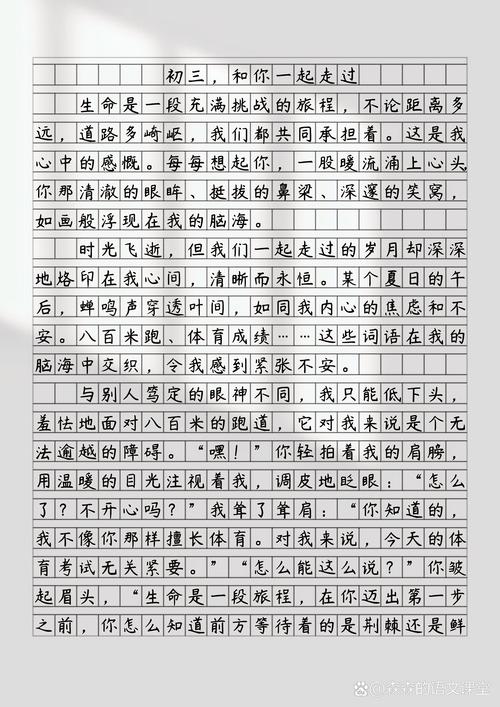 初三，和你一起走过
生命是一段充满挑战的旅程，不论距离多
远，道路多崎岖，我们都共同承担着。这是我
心中的感慨。每每想起你，一股暖流涌上心头
你那清澈的眼眸、挺拔的鼻梁、深邃的笑窝，
如画般浮现在我的脑海。
时光飞逝，但我们一起走过的岁月却深深
地烙印在我心间，清晰而永恒。某个夏日的午
后，蝉鸣声穿透叶间，如同我内心的焦虑和不
安。八百米跑、体育成绩……这些词语在我的
脑海中交织，令我感到紧张不安。
与别人笃定的眼神不同，我只能低下头，
羞怯地面对八百米的跑道，它对我来说是个无
法逾越的障碍。“嘿！”你轻拍着我的肩膀，
用温暖的目光注视着我，调皮地眨眼：“怎么
了？不开心吗？”我耸了耸肩：“你知道的，
我不像你那样擅长体育。对我来说，今天的体
育考试无关紧要。”“怎么能这么说？”你皱
起眉头，“生命是一段旅程，在你迈出第一步
之前，你怎么知道前方等待着的是荆棘还是鲜
@森森的语文课堂